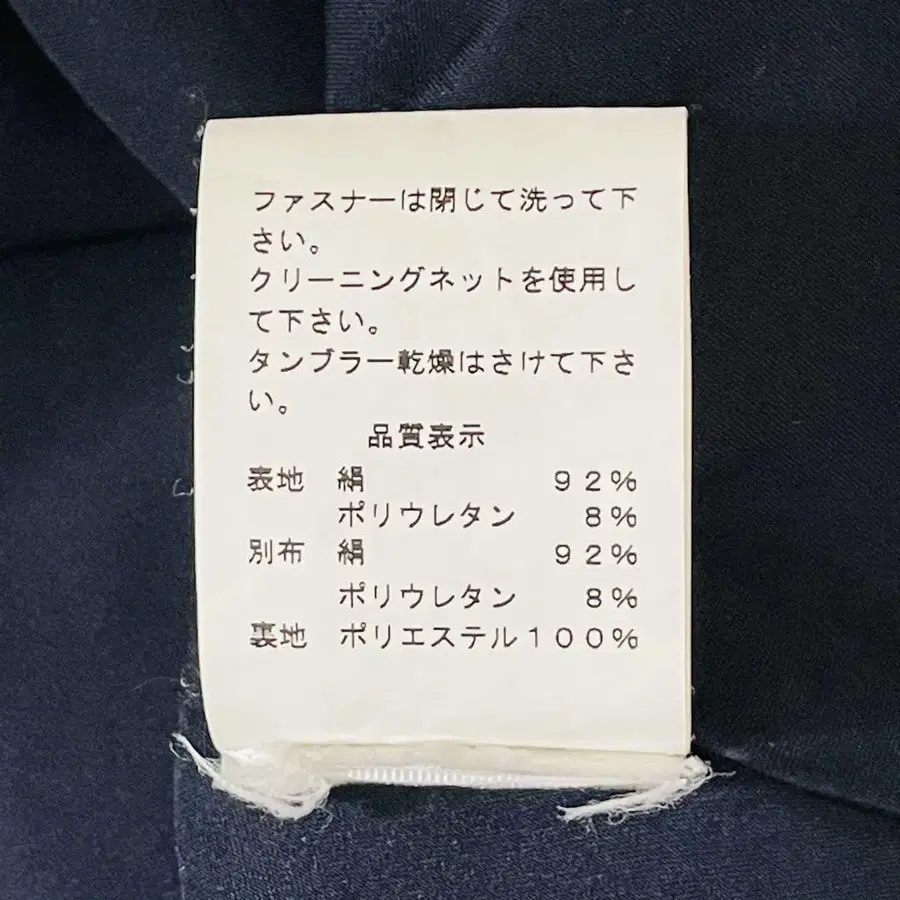 ファスナーは閉じて洗って下
さい。
クリーニングネットを使用し
て下さい。
タンブラー乾燥はさけて下さ
い。
品質表示
表地 絹 92%
ポリウレタン 8%
別布 絹 92%
ポリウレタン 8%
裏地 ポリエステル100%